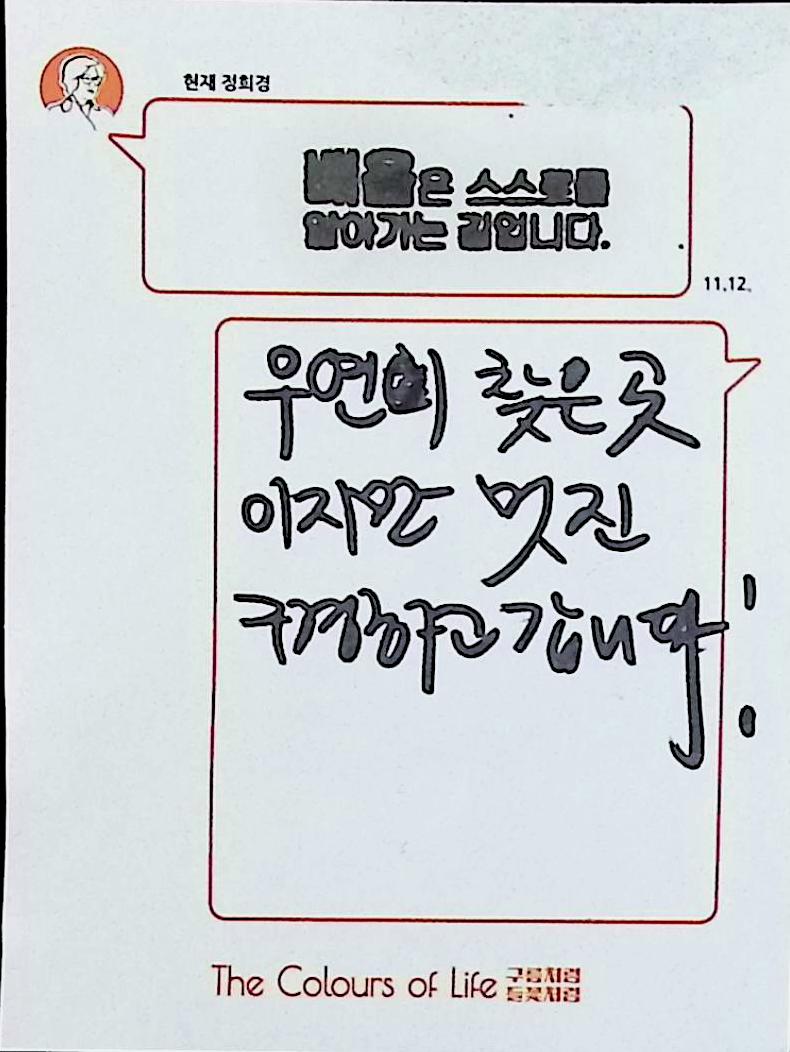 현재 정희경
배움은 스스로를
알아가는 길입니다.
11.12.
우연히 찾은 곳
이지만 멋진
구경하고 갑니다!
The Colours of Life 구름처럼
들꽃처럼